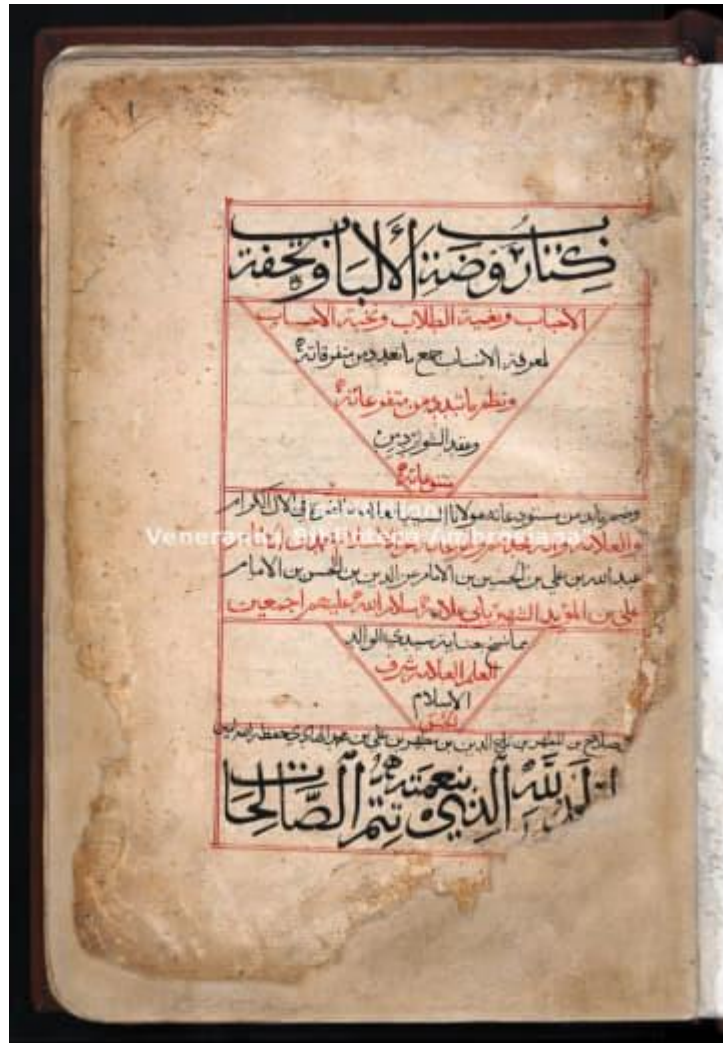 ١
كتاب روضة الألباب وتحفة
الاحباب وبغية الطلاب ونخبة الاحساب
لمعرفة الانساب جمع ما تعدد من متفرقاته
ونظم ما تبدد من متفرعاته
وعقد الشوارد من
متنوعاته
وضم ما بد من مستودعاته مولانا السيد في الال الكرام
والعلامة
عبد الله بن علي بن الحسين بن الامام عز الدين بن الحسن بن الامام
علي بن المؤيد الشهير بابي علامة سلام الله عليهم اجمعين
مما نسخ بعناية سيدي الوالد
العلم العلامة شرف
الاسلام
الحسين
صلاح بن المطهر بن تاج الدين بن مطهر بن علي بن محمد الهادي حفظه الله امين
الحمد لله الذي بنعمته تتم الصالحات
Veneranda Biblioteca Ambrosiana